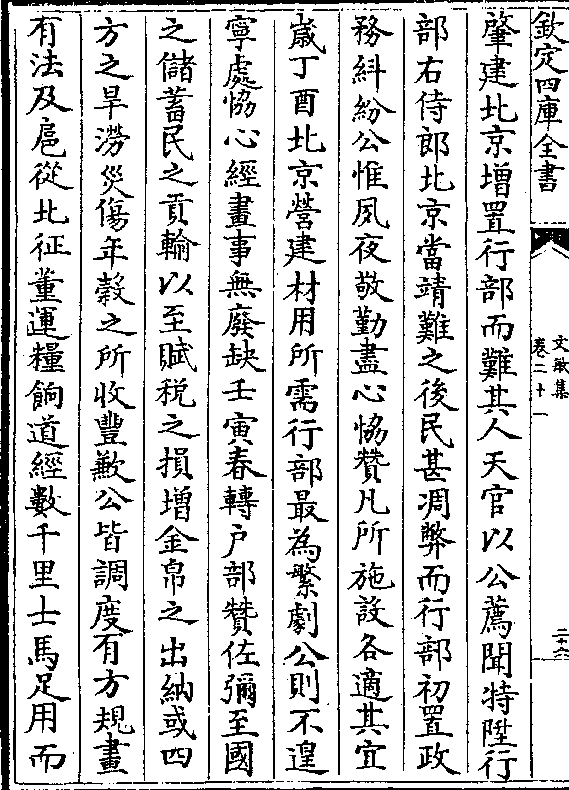 欽定四庫全書
文敏集
卷二十一
二十六
肇建北京增置行部而難其人天官以公薦聞特陞行
部右侍郎北京當靖難之後民甚凋弊而行部初置政
務糾紛公惟夙夜敬勤盡心恊贊凡所施設各適其宜
歲丁酉北京營建材用所需行部最為繁劇公則不遑
寧處恊心經畫事無廢缺壬寅春轉户部贊佐彌至國
之儲蓄民之貢輸以至賦税之損增金帛之出納或四
方之旱澇災傷年穀之所收豐歉公皆調度有方規畫
有法及扈從北征董運糧餉道經數千里士馬足用而